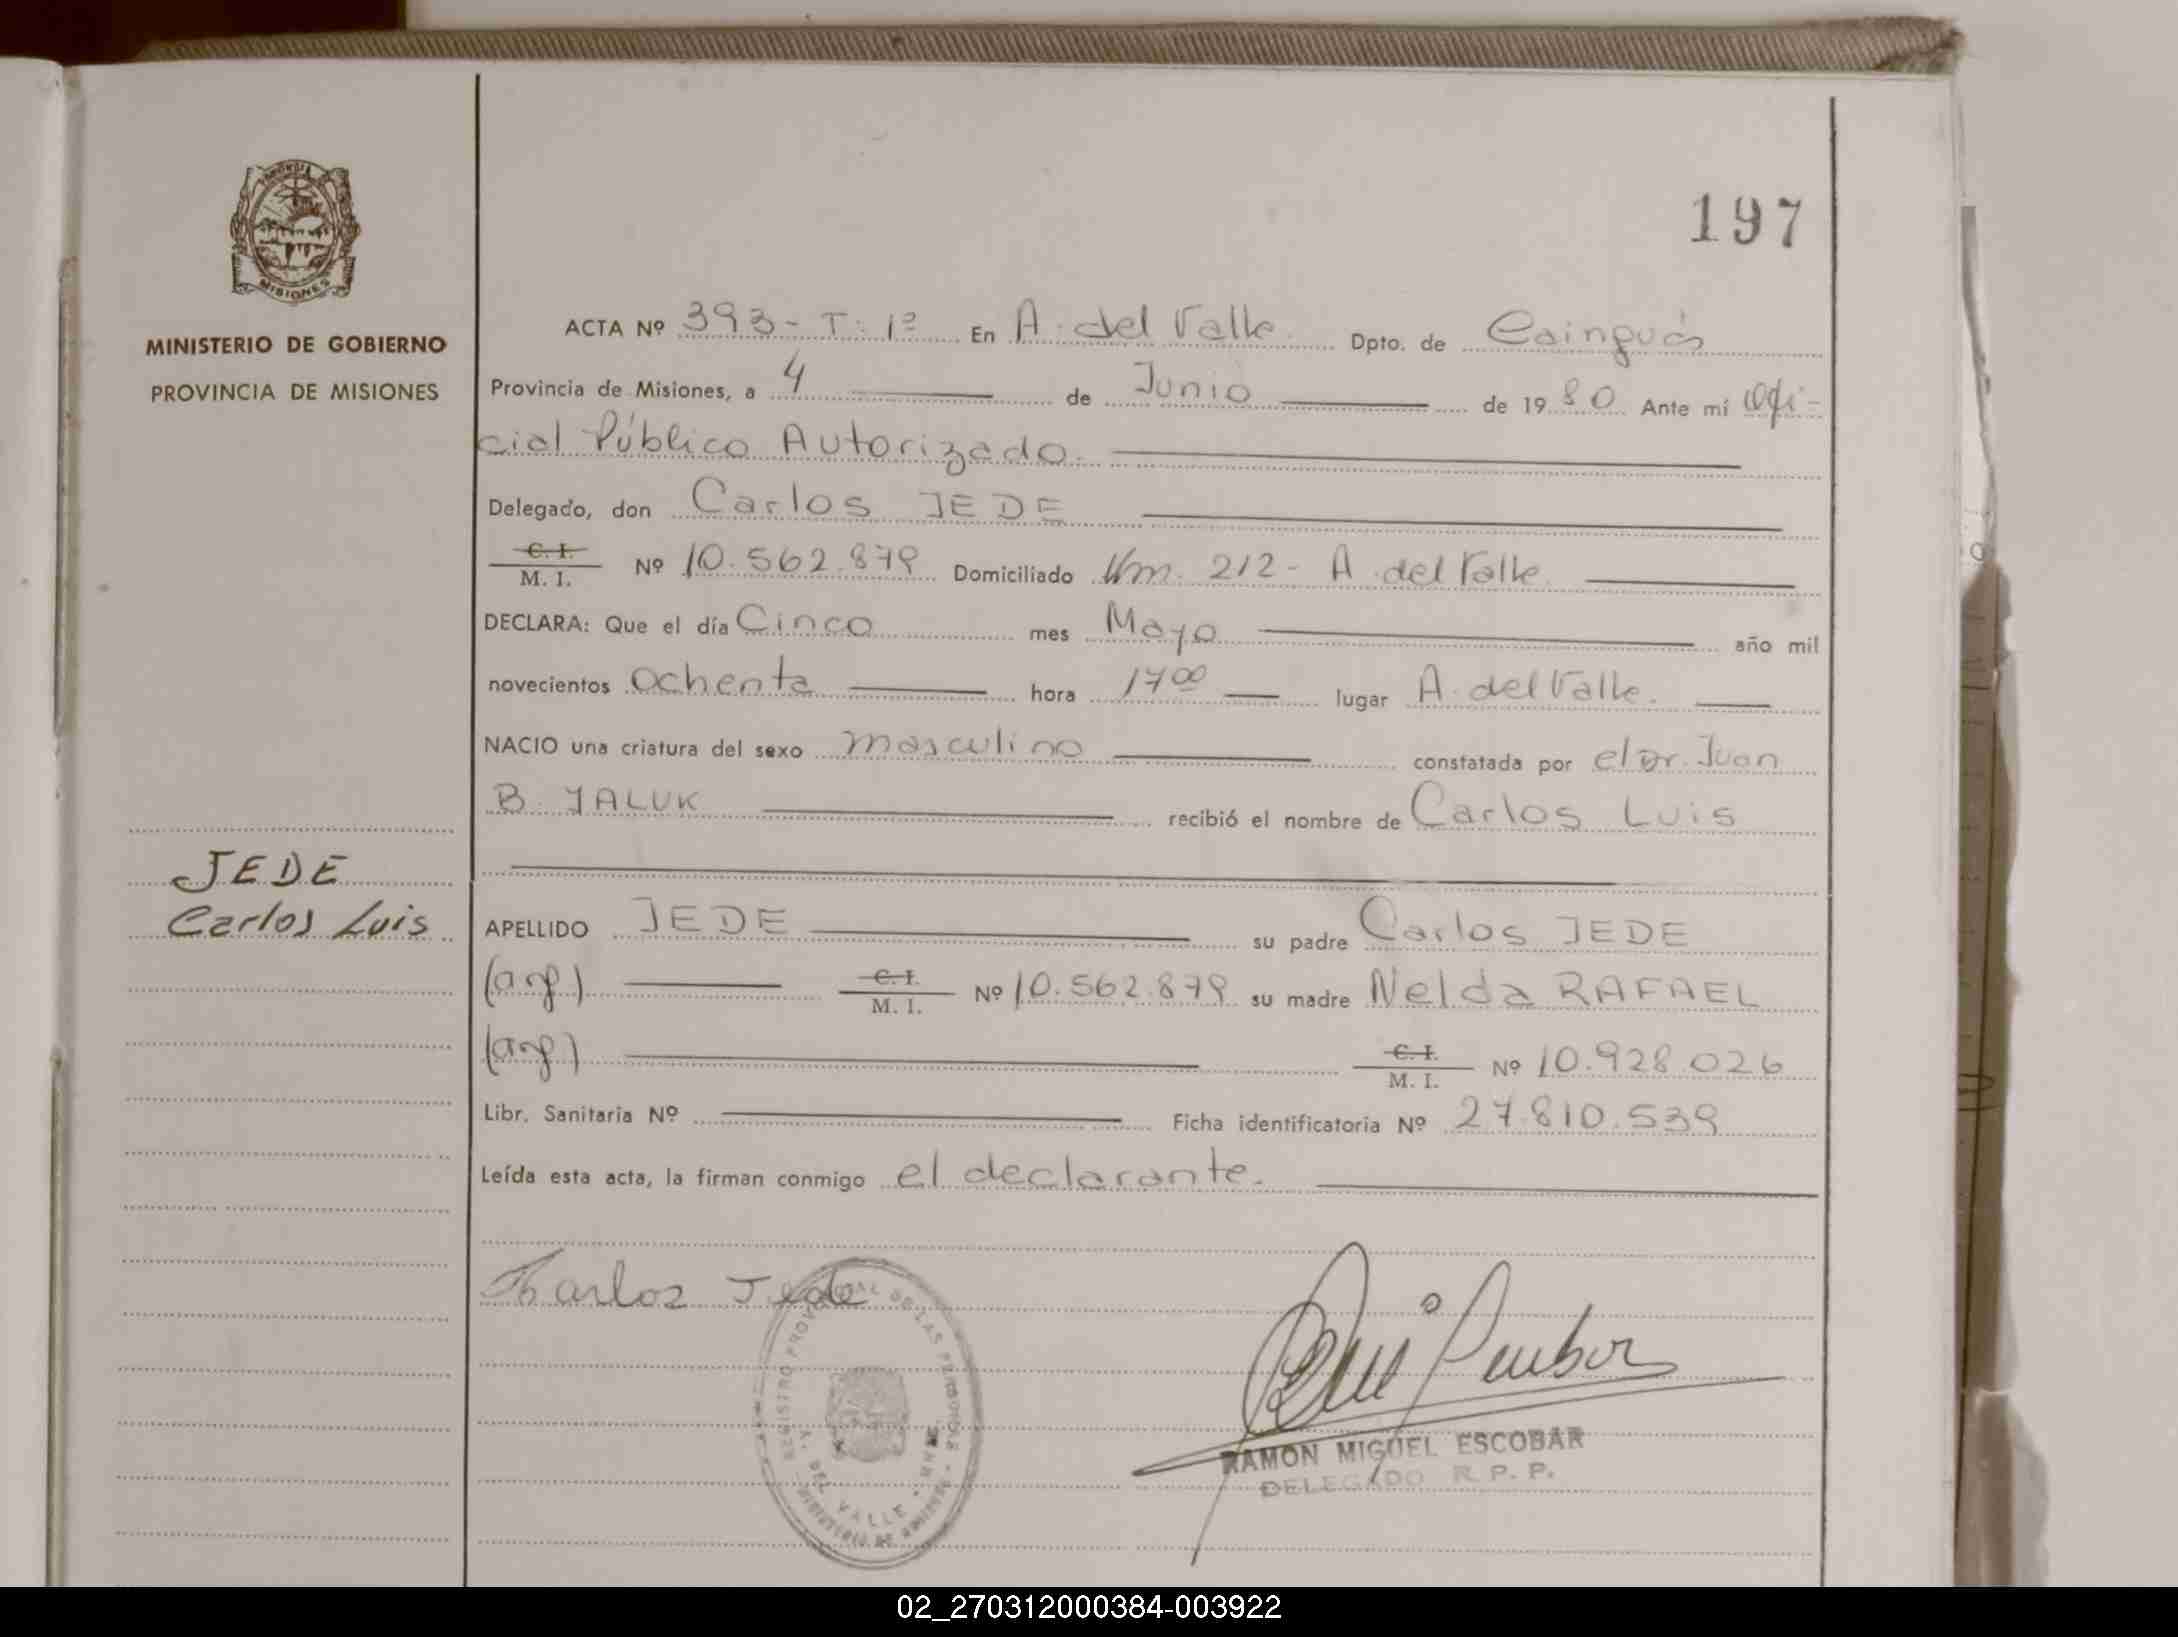 197
MINISTERIO DE GOBIERNO
PROVINCIA DE MISIONES
MISIONES
JEDE
Carlos Luis
ACTA Nº 393 - T: 1º En A. del Valle. Dpto. de Cainguás
Provincia de Misiones, a 4 de Junio de 19 80 Ante mí Ofi-
cial Público Autorizado.
Delegado, don Carlos JEDE
C. I.
M. I. Nº 10.562.879 Domiciliado Km. 212 - A. del Valle
DECLARA: Que el día Cinco mes Mayo año mil
novecientos ochenta hora 17 00 lugar A. del Valle.
NACIO una criatura del sexo masculino constatada por el Dr. Juan
B. JALUK recibió el nombre de Carlos Luis
APELLIDO JEDE su padre Carlos JEDE
(arg) C. I.
M. I. Nº 10.562.879 su madre Nelda RAFAEL
(arg) C. I.
M. I. Nº 10.928.026
Libr. Sanitaria Nº Ficha identificatoria Nº 27.810.539
Leída esta acta, la firman conmigo el declarante.
Karlos Jede
REGISTRO PROVINCIAL DE LAS PERSONAS
A. DEL VALLE
RAMON MIGUEL ESCOBAR
DELEGADO R. P. P.
02_270312000384-003922